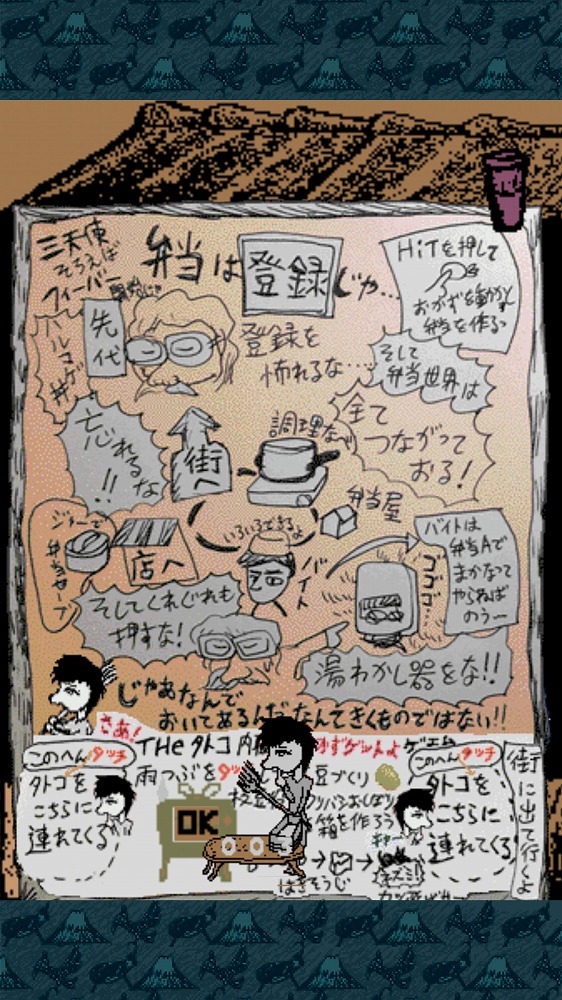 三天使
そろえば
フィーバー
弁当は登録じゃ…
HiTを押して
おかずを動かし
弁当を作るっ
先代
登録を
怖れるな…
そして
弁当世界は
忘れるな!!
街へ
調理など
全て
つながって
おる!
弁当屋
ジャーで
弁当セーブ
店へ
いろいろできるよ
バイト
ゴゴゴ…
バイトは
弁当Aで
まかなって
やらねば
のうー
そしてくれぐれも
押すな!
湯わかし器をな!!
じゃあなんで
おいてあるんだなんてきくものではない!!
さあ!
THe タトコ内職
このへんタッチ
タトコを
こちらに
連れてくる
雨つぶを
OK
豆づくり
箱を作ろう
はきそうじ
このへんタッチ
タトコを
こちらに
連れてくる
街に出て行くよ